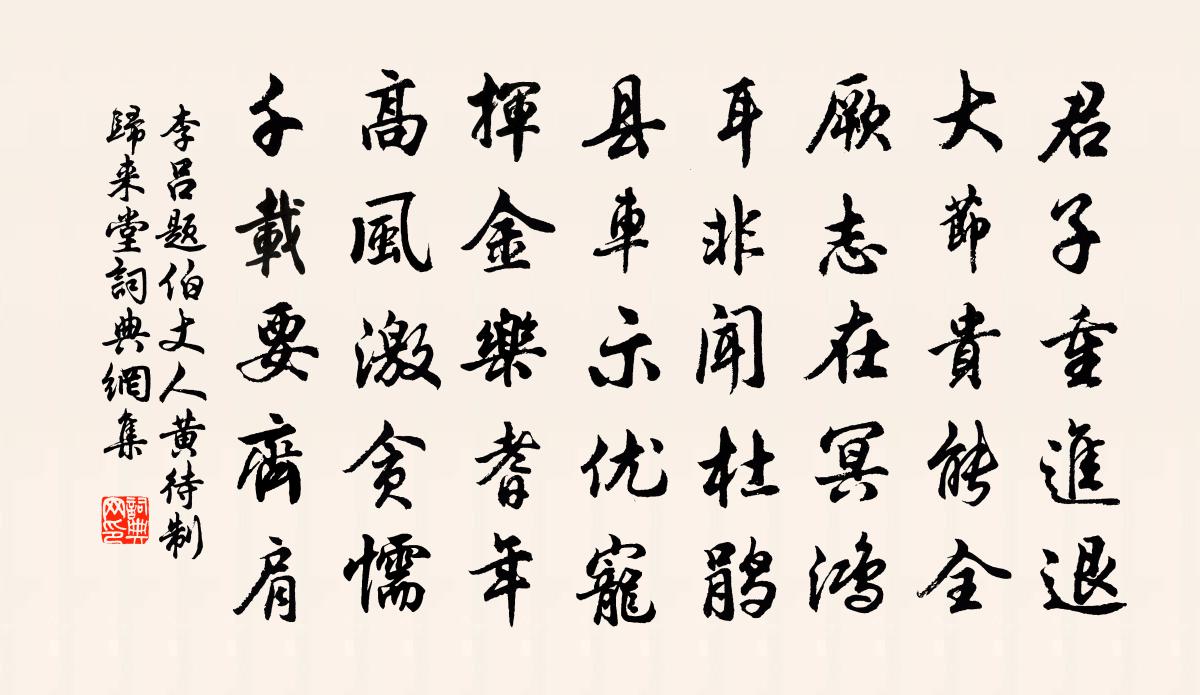 君子重進退
大節貴能全
厥志在冥鴻
耳非闻杜鹃
县車示优寵
揮金樂耆年
高風激贪懦
千載要齊肩
李呂题伯丈人黄待制
歸来堂詞典網集
詞典网印